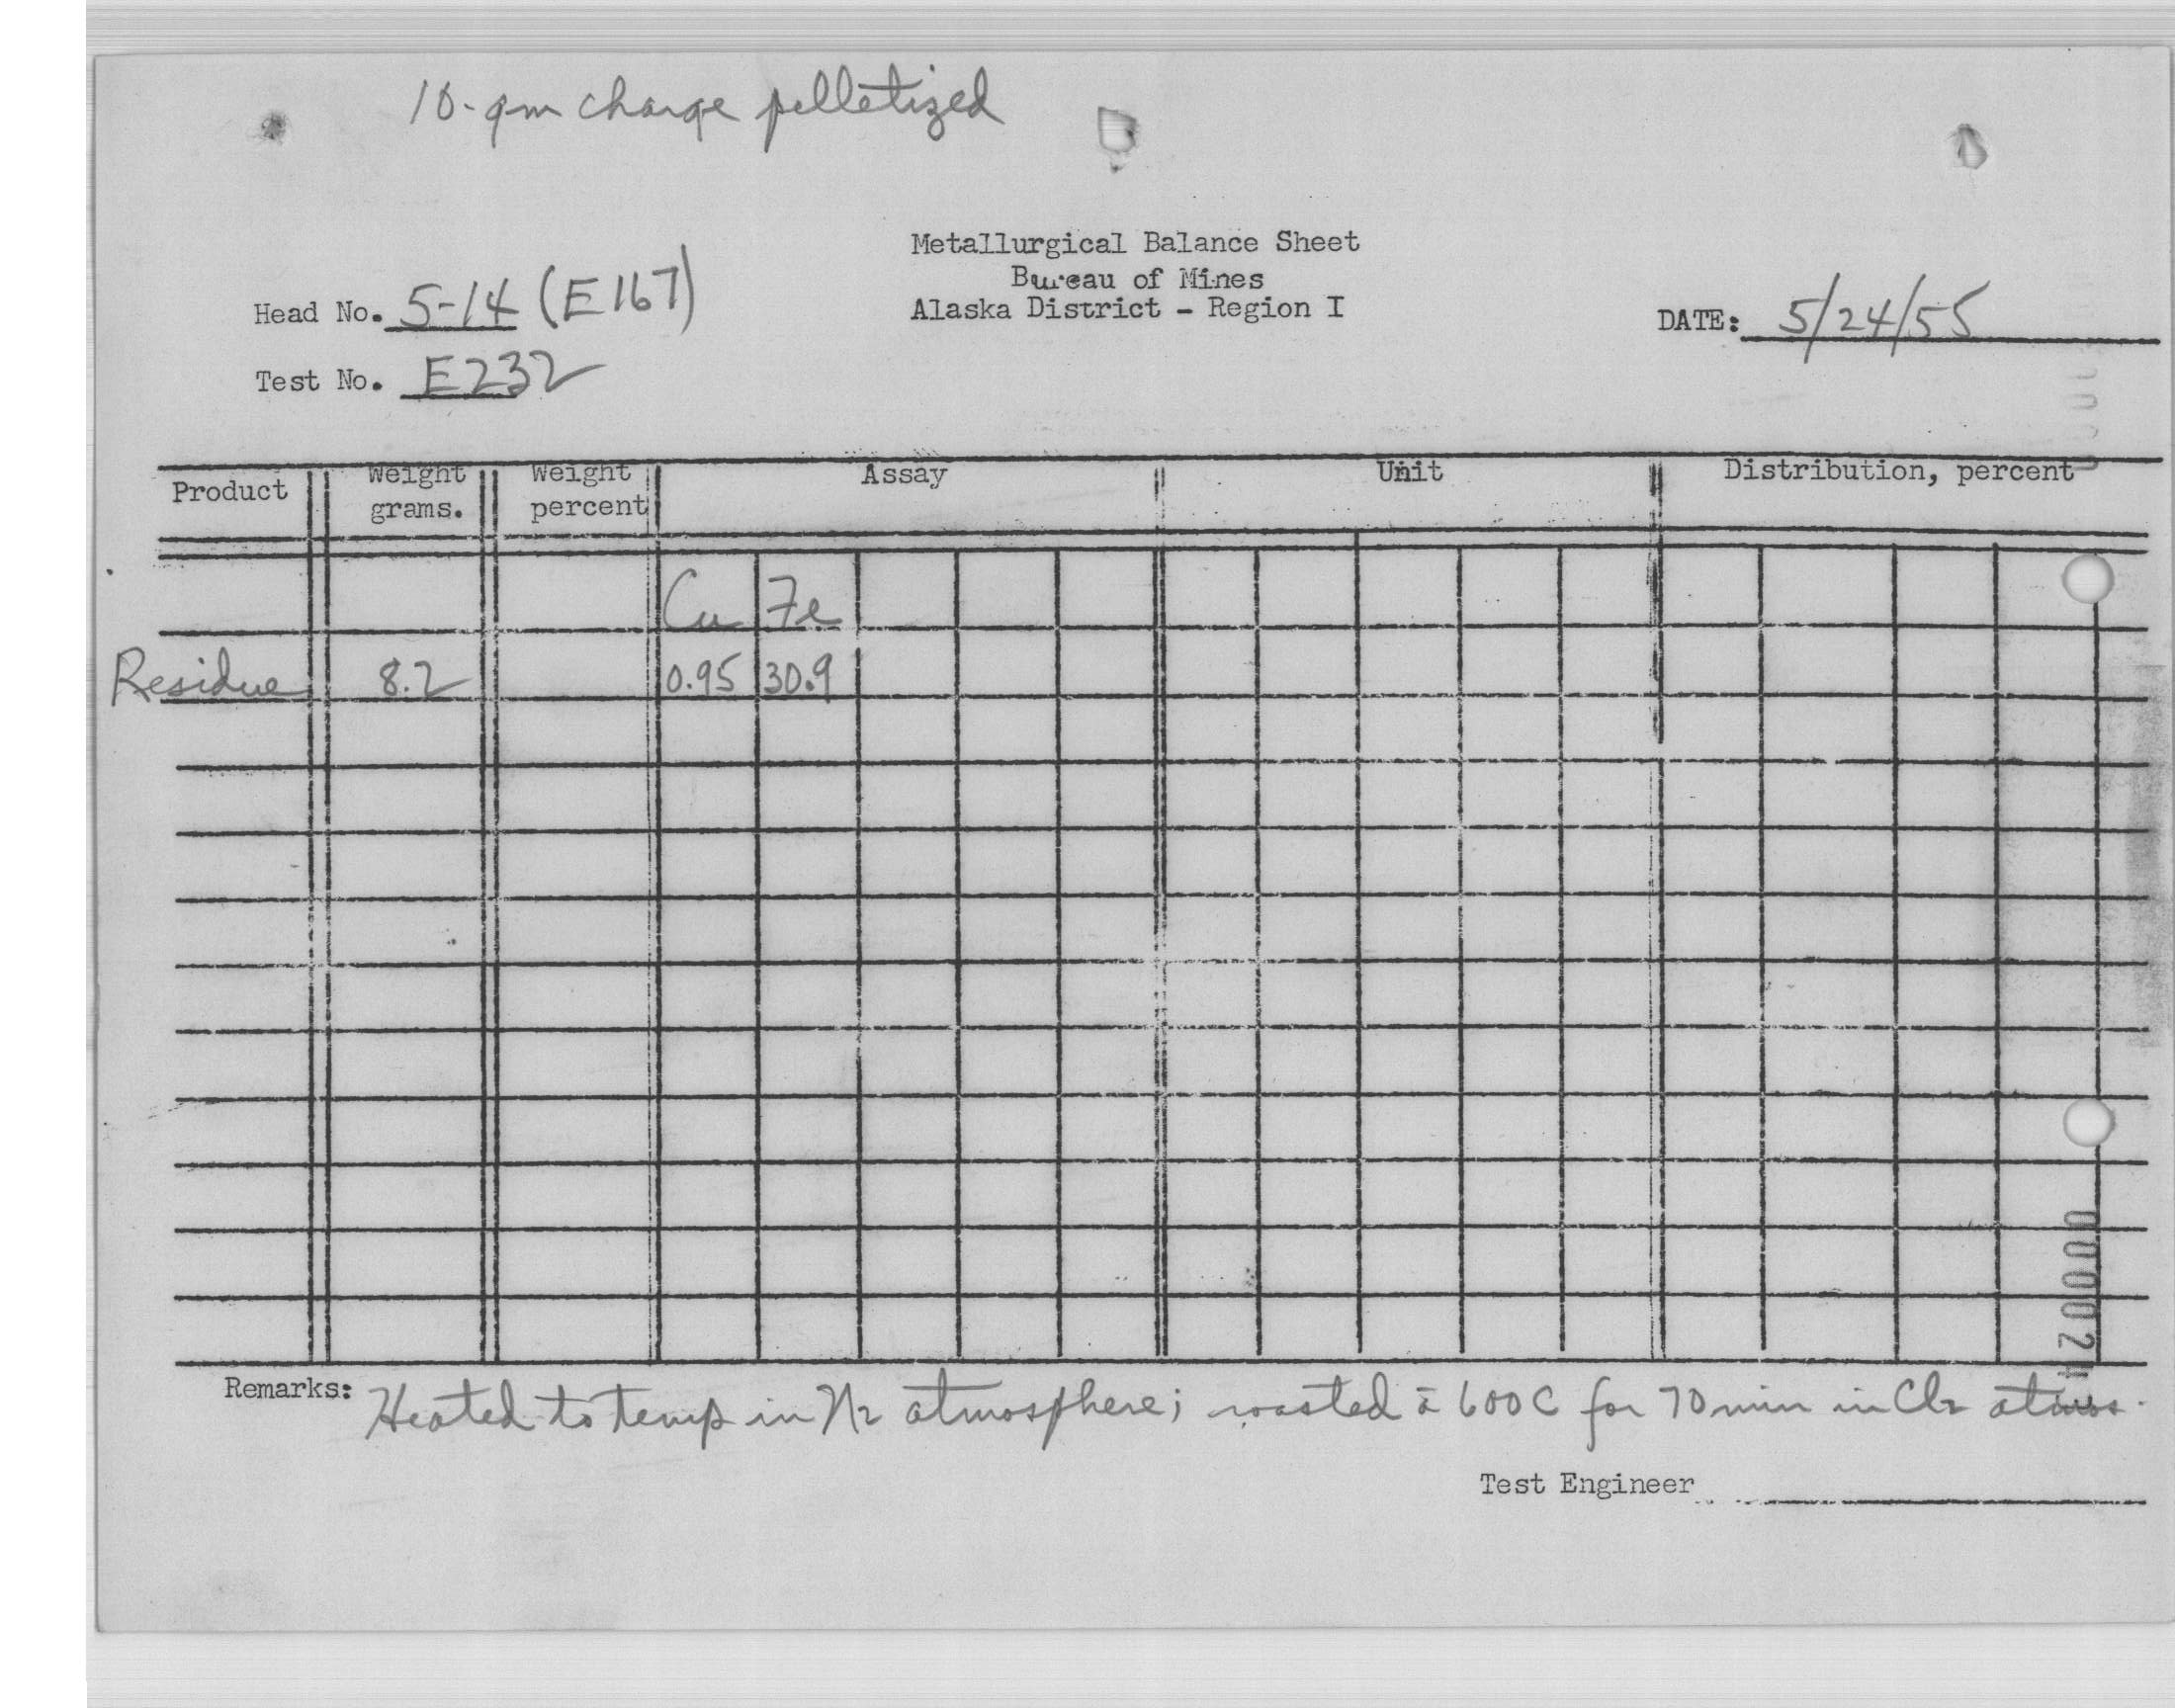 10-gm charge pelletized
Metallurgical Balance Sheet
Bureau of Mines
Alaska District - Region I
Head No. 5-14 (E167)
DATE: 5/24/55
Test No. E232
Product Weight grams. Weight percent Assay Unit Distribution, percent
Cu Fe
Residue 8.2 0.95 30.9
Remarks: Heated to temp in N2 atmosphere; roasted ā 600C for 70 min in Cl2 atmos.
Test Engineer